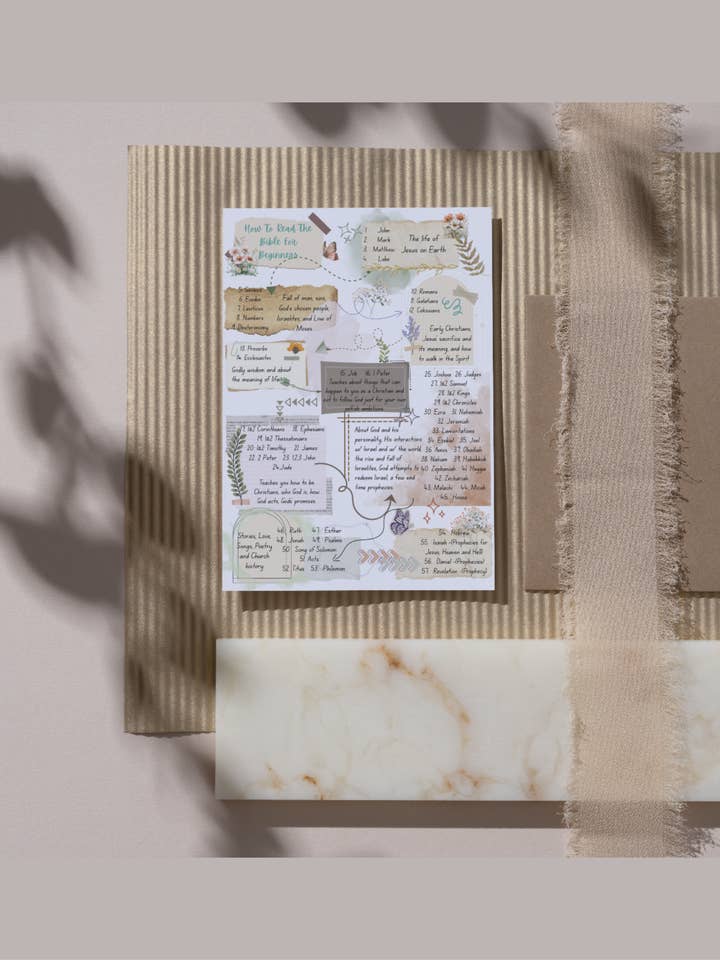 How To Read The
Bible For
Beginners
1. John
2. Mark
3. Matthew
4. Luke
The life of
Jesus on Earth
5. Genesis
6. Exodus
7. Leviticus
8. Numbers
9. Deuteronomy
Fall of man, sins,
God's chosen people,
Israelites, and Law of
Moses
10. Romans
11. Galatians
12.
Early Christians,
Jesus sacrifice and
its meaning, and how
to walk in the Spirit
13. Proverbs
14. Ecclesiastes
Godly wisdom and about
the meaning of life
15. Job 16. 1 Peter
Teaches about things that can
happen to you as a Christian and
not to follow God just for your own
selfish ambitions.
17. 1&2 Corinthians 18. Ephesians
19. 1&2 Thessalonians
20. 1&2 Timothy 21. James
22. 2 Peter 23. 1,2,3 John
24. Jude
Teaches you how to be
Christians, who God is, how
God acts, Gods promises.
About God and his
personality, His interactions
w/ Israel and w/ the world,
the rise and fall of
Israelites, God attempts to
redeem Israel, a few end
time prophecies.
25. Joshua 26. Judges
27. 1&2 Samuel
28. 1&2 Kings
29. 1&2 Chronicles
30. Ezra 31. Nehemiah
32. Jeremiah
33. Lamentations
34. Ezekiel 35. Joel
36. Amos 37. Obadiah
38. Nahum 39. Habakkuk
40. Zephaniah 41. Haggai
42. Zechariah
43. Malachi 44. Micah
45. Hosea
Stories, Love,
Songs, Poetry
and Church
history
46. Ruth 47. Esther
48. Jonah 49. Psalms
50. Song of Solomon
51. Acts
52. Titus 53.
54. Hebrew
55. Isaiah -(Prophecies for
Jesus, Heaven and Hell)
56. Daniel -(Prophecies)
57. Revelation -(Prophecy)